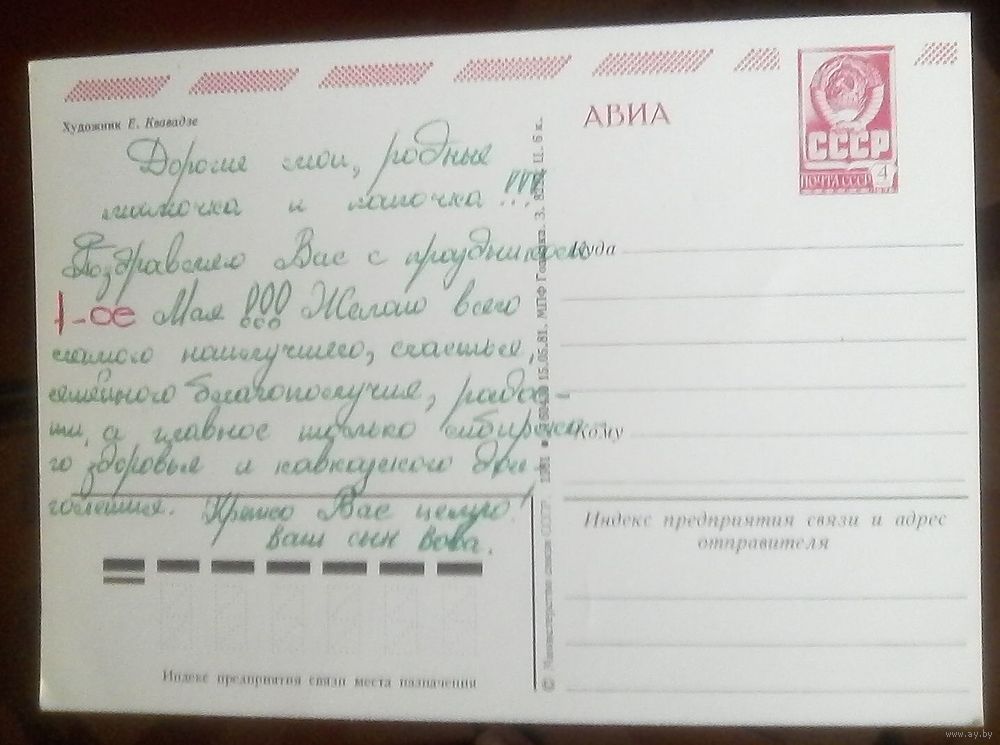 Художник Е. Квавадзе
АВИА
СССР
ПОЧТА СССР 4
Дорогие мои, родные
мамочка и папочка!!!
Поздравляю Вас с праздником
1-ое Мая!!! Желаю всего
самого наилучшего, счастья,
семейного благополучия, радос-
ти, а главное только сибирско-
го здоровья и кавказского дол-
голетия. Крепко Вас целую!
ваш сын Вова.
Куда
Кому
Индекс предприятия связи и адрес
отправителя
Индекс предприятия связи места назначения
© Министерство связи СССР. 1981 15.05.81. МПФ Гознака. З. Ц. 6 к.
www.ay.by